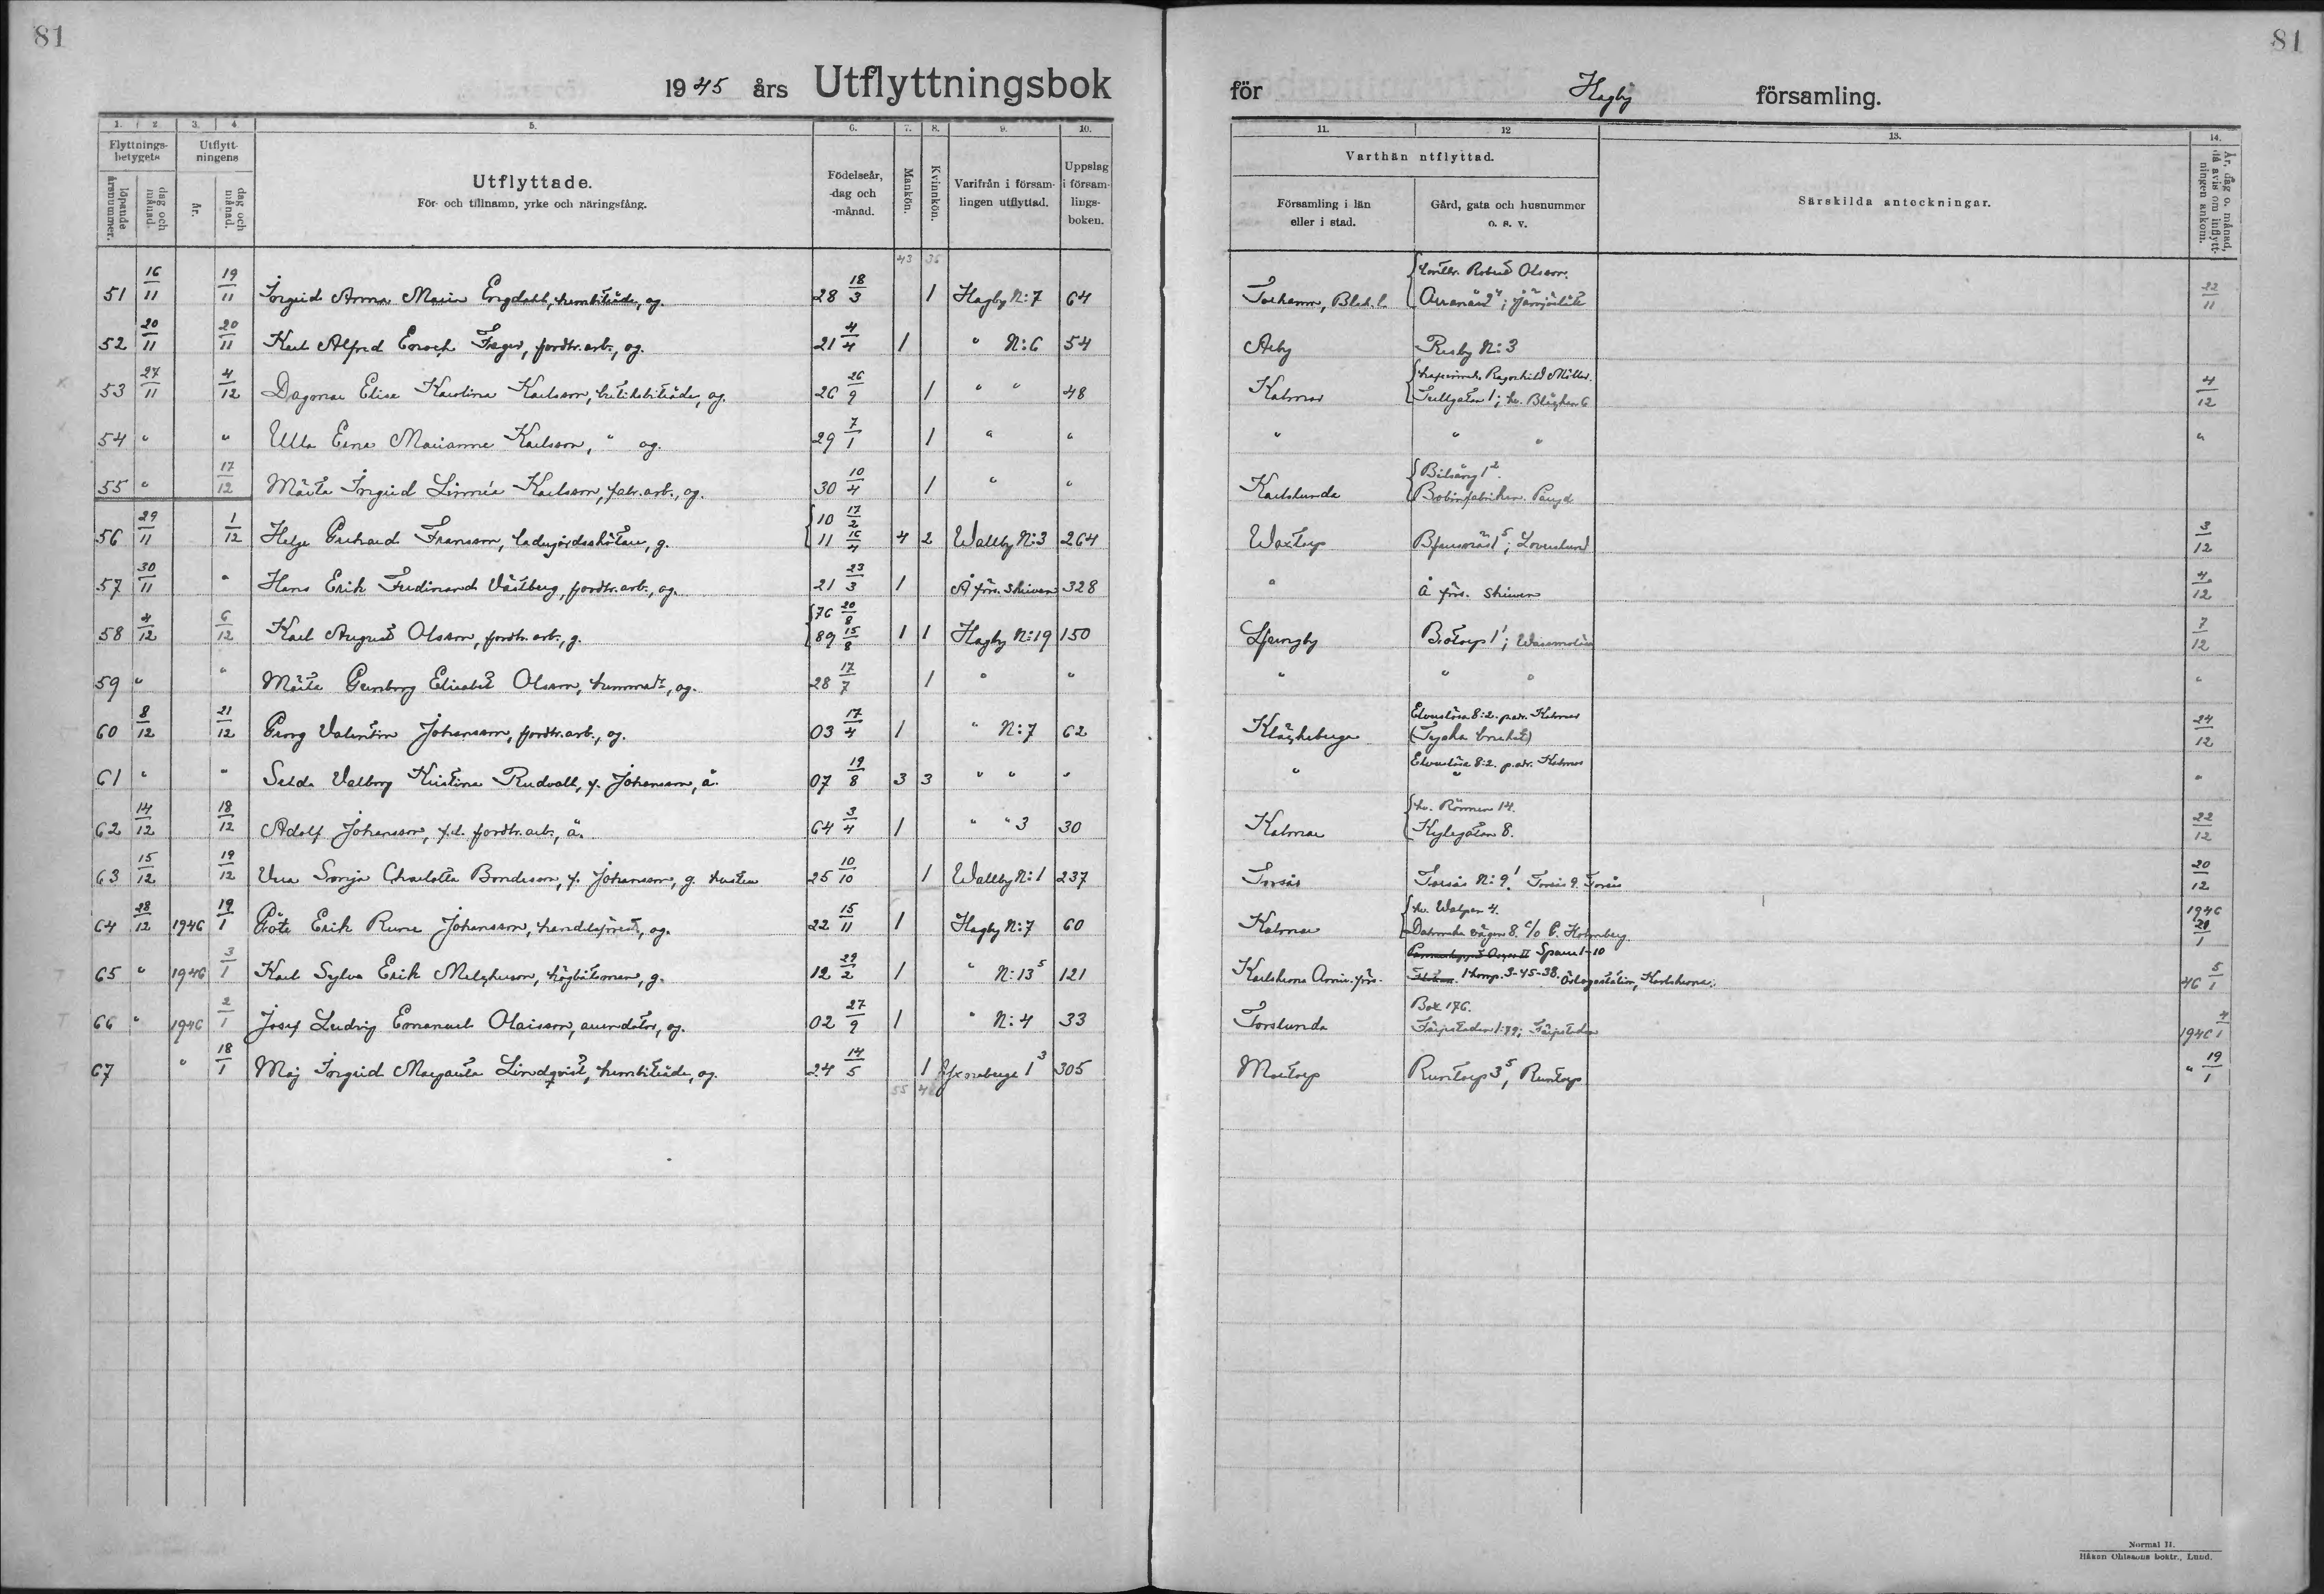 81
81
1945 års Utflyttningsbok
för Hagby församling.
1. 2. 3. 4. 5. 6. 7. 8. 9. 10.
11. 12 13. 14.
Flyttnings-betygets
löpande årsnummer.
dag och månad.
Utflytt-ningens
år.
dag och månad.
Utflyttade.
För- och tillnamn, yrke och näringsfång.
Födelseår, -dag och -månad.
Mankön.
Kvinnkön.
Varifrån i försam-lingen utflyttad.
Uppslag i försam-lings-boken.
Varthän utflyttad.
Församling i län eller i stad.
Gård, gata och husnummer o. s. v.
Särskilda anteckningar.
År, dag o. månad, då avis om inflytt-ningen ankom.
43 36
51 16/11 19/11 Ingrid Anna Maria Engdahl, hembiträde, og. 28 18/3 1 Hagby N:7 64 Torhamn, Blek. l. Robert Olsson. 22/11
52 20/11 20/11 Karl Alfred Enoch Fager, jordbr.arb., og. 21 4/4 1 " N:6 54 Arby Risby N:3
53 27/11 4/12 Dagmar Elise Karolina Karlsson, butiksbiträde, og. 26 26/9 1 " " 48 Kalmar Ragnhild Möller. Tullgatan 1; kv. Bleckan 6 4/12
54 " " Ulla Erna Marianne Karlsson, " og. 29 7/1 1 " " " " " "
55 " 17/12 Märta Ingrid Linnéa Karlsson, fabr.arb., og. 30 10/4 1 " " Karlslunda Bilsäng 1² Bobinfabriken. Påryd.
56 29/11 1/12 Helge Gerhard Fransson, ladugårdsskötare, g. 10 17/2 11 16/4 4 2 Wallby N:3 264 Woxtorp 3/12
57 30/11 " Hans Erik Ferdinand Västberg, jordbr.arb., og. 21 23/3 1 Å förs. skriven 328 " å förs. skriven 4/12
58 4/12 6/12 Karl August Olsson, jordbr.arb., g. 76 20/8 89 15/8 1 1 Hagby N:19 150 Ljungby Botorp 1¹; Wassmolösa 7/12
59 " " Märta Gunborg Elisabet Olsson, hemmadr, og. 28 17/7 1 " " " " " "
60 8/12 21/12 Georg Valentin Johansson, jordbr.arb., og. 03 17/4 1 " N:7 62 Kläckeberga Elverslösa 8:2. p.adr. Kalmar (Tyska bruket) 24/12
61 " " Selda Valborg Kristina Rudvall, f. Johansson, ä. 07 19/8 3 3 " " " " Elverslösa 8:2. p.adr. Kalmar " "
62 14/12 18/12 Adolf Johansson, f.d. jordbr.arb., ä. 64 3/4 1 " " 3 30 Kalmar kv. Rönnen 14. Kylegatan 8. 22/12
63 15/12 19/12 Vera Sonja Charlotta Bondeson, f. Johansson, g. hustru 25 10/10 1 Wallby N:1 237 Torsås Torsås N:9¹ Torsås 9. Torsås 20/12
64 28/12 1946 19/1 Göte Erik Rune Johansson, handelsförest., og. 22 15/11 1 Hagby N:7 60 Kalmar kv. Walpen 4. vägen 8. c/o P. Holmberg. 1946 21/1
65 " 1946 3/1 Karl Sylve Erik Melcherson, högbåtsman, g. 12 29/2 1 " N:13⁵ 121 Karlskrona Amir. förs. 1 komp. 3-45-38. Örlogsstation, Karlskrona. 46 5/1
66 " 1946 2/1 Josef Ludvig Emanuel Olaisson, arrendator, og. 02 27/9 1 " N:4 33 Torslunda Box 176. Färjestaden 1:72; Färjestaden 1946 4/1
67 " 18/1 Maj Ingrid Margareta Lindqvist, hembiträde, og. 24 14/5 1 305 Mortorp Runtorp 3⁵, Runtorp " 19/1
55
Normal II.
Håkan Ohlssons boktr., Lund.